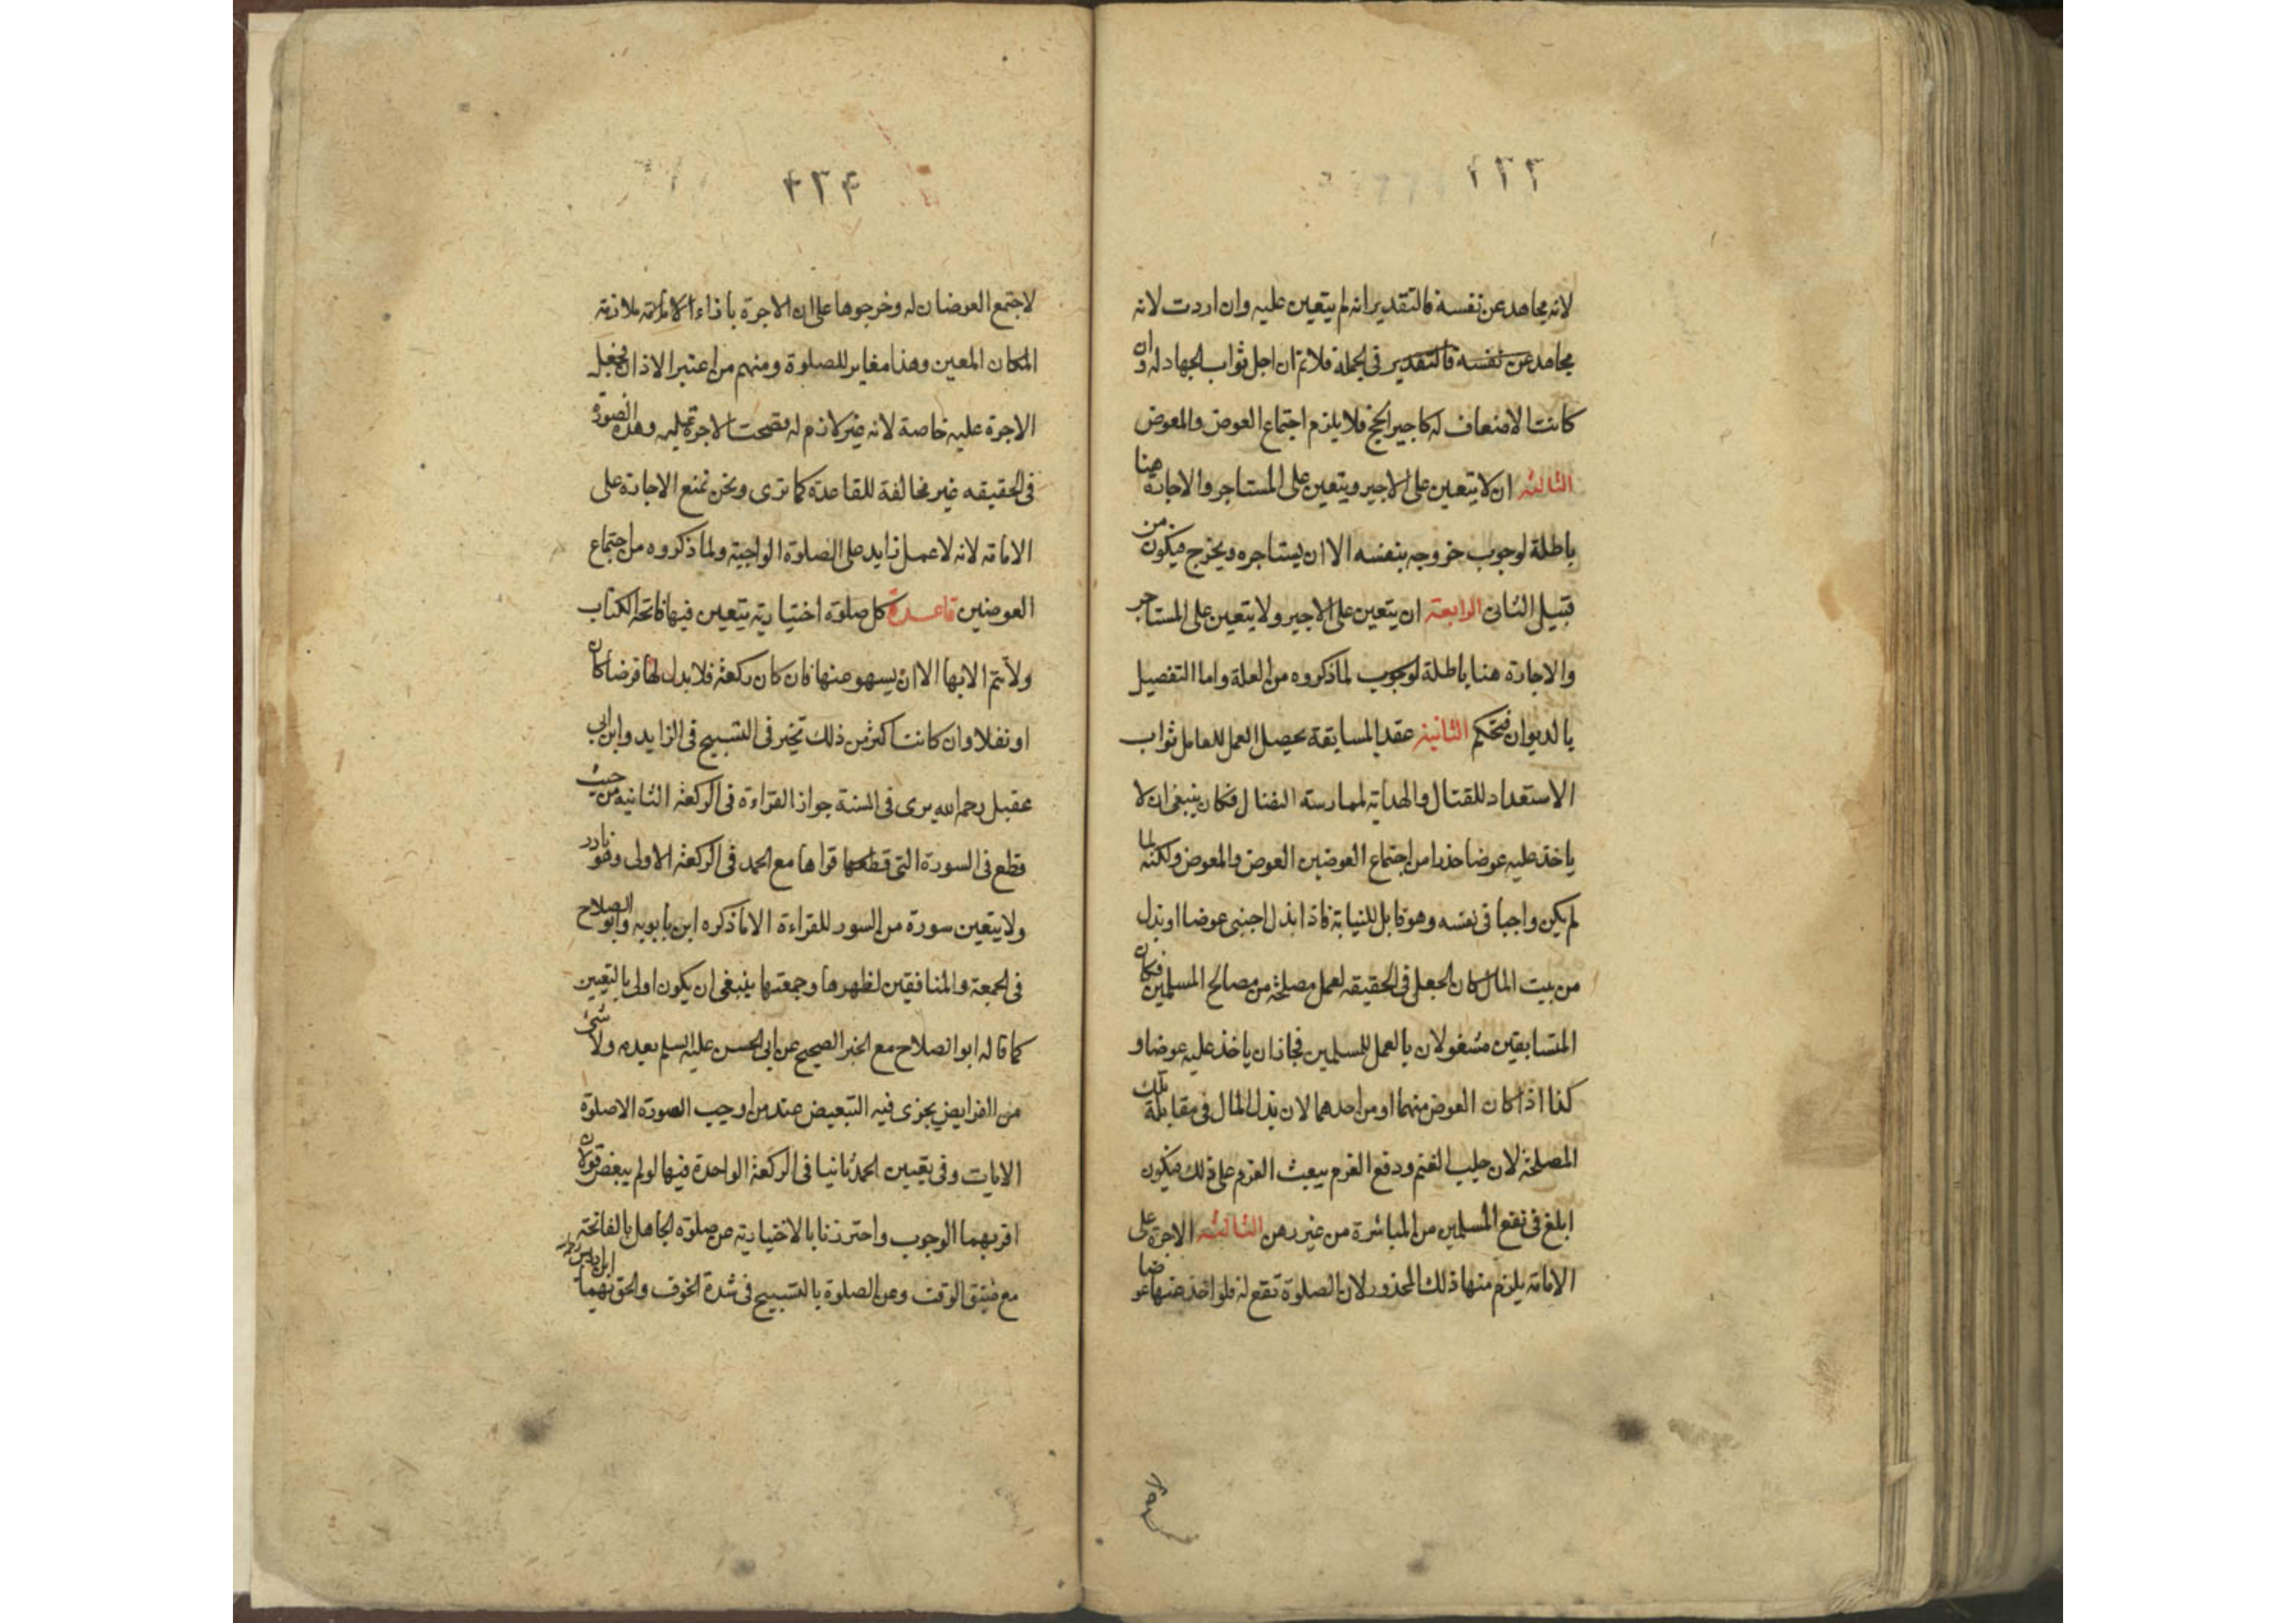 ٢٣٣
لانه يجاهد عن نفسه فالتقدير انه لم يتعين عليه وان اردت لانه
يجاهد عن نفسه فالتقدير فى الجملة فلا ثم ان اجل ثواب الجهاد له وان
كانت الاضعاف له كاجير الحج فلا يلزم اجتماع العوض والمعوض
الثالثة ان لا يتعين على الاجير ويتعين على المستاجر والاجارة هنا
باطلة لوجوب خروجه بنفسه الا ان يستاجره ويخرج فيكون من
قبيل الثانى الرابعة ان يتعين على الاجير ولا يتعين على المستاجر
والاجارة هنا باطلة لوجوب لما ذكروه من العلة واما التفصيل
بالديوان فتحكم الثانية عقد المسابقة يحصل العمل للعامل ثواب
الاستعداد للقتال والهداية لممارسة النضال فكان ينبغى ان لا
ياخذ عليه عوضا حذرا من اجتماع العوضين العوض والمعوض ولكنه لما
لم يكن واجبا فى نفسه وهو قابل للنيابة فاذا بذل اجنبى عوضا او بذل
من بيت المال كان الجعل فى الحقيقه لعمل مصلحة من مصالح المسلمين فكان
المتسابقين مشغولان بالعمل للمسلمين فجاز ان ياخذ عليه عوضا و
كذا اذا كان العوض منهما او من احدهما لان بذل المال فى مقابلة تلك
المصلحة لان جلب الغنم ودفع الغرم يبعث العزم على ذلك فيكون
ابلغ فى نفع المسلمين من المباشرة من غير رهن الثالثة الاجرة على
الامامة يلزم منها ذلك المحذور لان الصلوة تقع له فلو اخذ عنها عوضا
٢٣٤
لاجتمع العوضان له وخرجوها على ان الاجرة بازاء ملازمة
المكان المعين وهذا مغاير للصلوة ومنهم من اعتبر الاذان فجعل
الاجرة عليه خاصة لانه غير لازم له فصحت الاجرة عليه وهذه الصورة
فى الحقيقه غير مخالفة للقاعدة كما ترى ونحن نمنع الاجارة على
الامامة لانه لا عمل زايد على الصلوة الواجبة ولما ذكروه من اجتماع
العوضين قاعدة كل صلوة اختيارية يتعين فيها فاتحة الكتاب
ولا تتم الا بها الا ان يسهو عنها فان كان ركعة فلا بدل لها فرضا كان
او نفلا وان كانت اكثر من ذلك تخير فى التسبيح فى الزايد وابن ابى
عقيل رحمه الله يرى فى السنة جواز القراءة فى الركعة الثانيه من حيث
قطع فى السورة التى قطعها قراها مع الحمد فى الركعة الاولى وهو نادر
ولا يتعين سورة من السور للقراءة الا ما ذكره ابن بابويه وابو الصلاح
فى الجمعة والمنافقين لظهرها وجمعتها ينبغى ان يكون اولى بالتعيين
كما قاله ابو الصلاح مع الخبر الصحيح عن ابى الحسن عليه السلم بعدمه ولا شئ
من الفرايض يجزى فيه التبعيض عند من اوجب السورة الا صلوة
الايات وفى تعيين الحمد ثانيا فى الركعة الواحدة فيها لو لم يبعض قولان
اقربهما الوجوب واحترزنا بالاختيارية عن صلوة الجاهل بالفاتحة
مع ضيق الوقت وعن الصلوة بالتسبيح فى شدة الخوف والحق بهما ابن